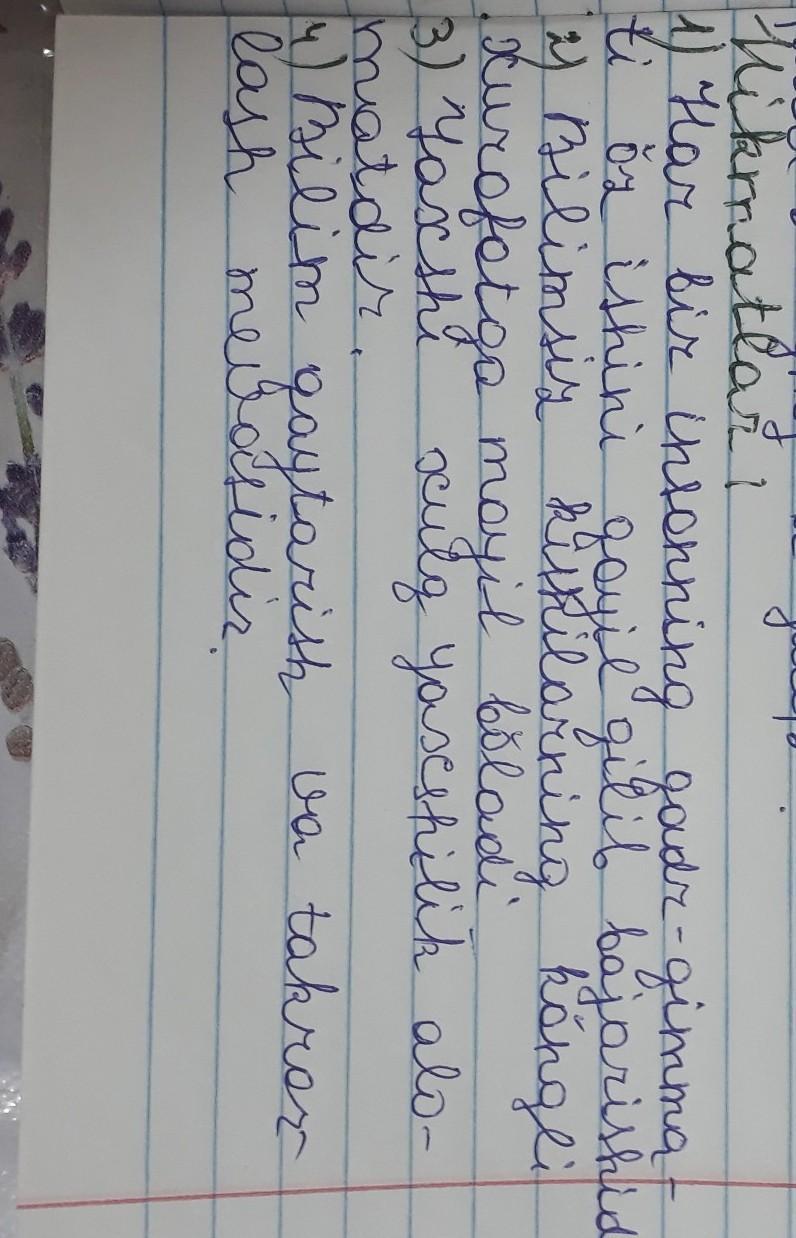 Hikmatlar:
1) Har bir insonning qadr-qimma-
ti öz ishini qoyil qilib bajarishid
2) Bilimsiz kishilarning köngli
xurofotga moyil böladi
3) Yaxshi xulq yaxshilik alo-
matdir.
4) Bilim qaytarish va takror-
lash mevasidir.